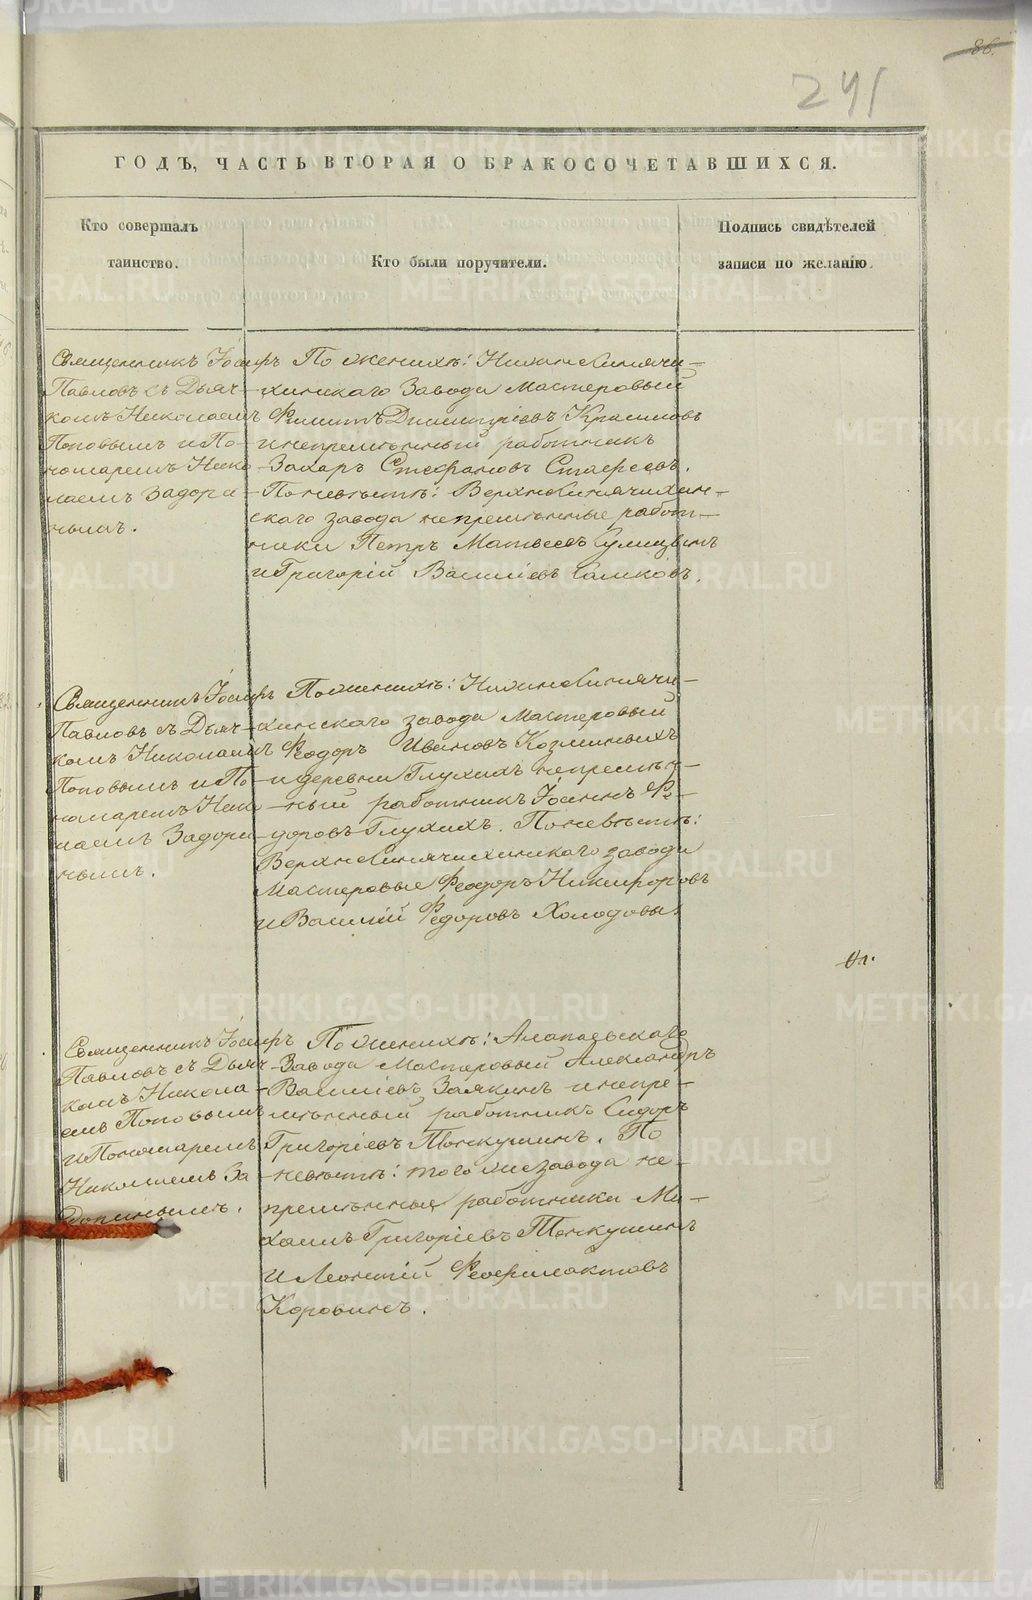 86.
241
ГОДЪ, ЧАСТЬ ВТОРАЯ О БРАКОСОЧЕТАВШИХСЯ.
Кто совершалъ
таинство.
Кто были поручители.
Подпись свидѣтелей
записи по желанію.
Священникъ Іосифъ
Павловъ съ Дьяч-
комъ Николаемъ
Поповымъ и По-
номаремъ Нико-
лаемъ Задори-
нымъ.
По женихѣ: Нижнесинячи-
хинскаго Завода Мастеровый
Филиппъ Димитріевъ Кришмовъ
и непремѣнный работникъ
Захаръ Стефановъ Стафеевъ.
По невѣстѣ: Верхнесинячихин-
скаго завода непремѣнные работ-
ники Петръ Матвеевъ
и Григорій Василіевъ
Священникъ Іосифъ
Павловъ съ Дьяч-
комъ Николаемъ
Поповымъ и По-
номаремъ Нико-
лаемъ Задори-
нымъ.
По женихѣ: Нижнесинячи-
хинскаго завода Мастеровый
Ѳеодоръ Ивановъ Козминыхъ
и деревни Глухихъ непремѣн-
ный работникъ Іоаннъ Ѳе-
доровъ Глухихъ. По невѣстѣ:
Верхнесинячихинскаго завода
Мастеровые Ѳеодоръ Никифоровъ
и Василій Ѳедоровъ Холодовы.
Священникъ Іосифъ
Павловъ съ Дьяч-
комъ Никола-
емъ Поповымъ
и Пономаремъ
Николаемъ За-
доринымъ.
По женихѣ: Алапаевскаго
Завода Мастеровый Александръ
Василіевъ Заякинъ и непре-
мѣнный работникъ Сидоръ
Григоріевъ Тонкушинъ. По
невѣстѣ: того же завода не-
премѣнные работники Ми-
хаилъ Григоріевъ Тонкушинъ
и Леонтій Ѳеофилактовъ
Коровинъ.
METRIKI.GASO-URAL.RU